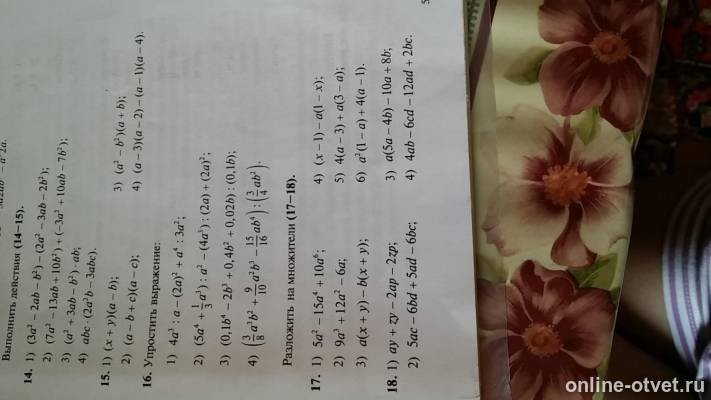 Выполнить действия (14–15).
14. 1) (3a² – 2ab – b²) – (2a² – 3ab – 2b²);
2) (7a² – 13ab + 10b²) + (–3a² + 10ab – 7b²);
3) (a² + 3ab – b²) · ab;
4) abc · (2a²b – 3abc).
15. 1) (x + y)(a – b);
2) (a – b + c)(a – c);
3) (a² – b²)(a + b);
4) (a – 3)(a – 2) – (a – 1)(a – 4).
16. Упростить выражение:
1) 4a³ : a – (2a)² + a⁴ : 3a²;
2) (5a⁴ + 1/3 a³) : a³ – (4a³) : (2a) + (2a)²;
3) (0,1b⁴ – 2b³ + 0,4b² + 0,02b) : (0,1b);
4) (3/8 a³b² + 9/10 a²b³ – 15/16 ab⁴) : (3/4 ab²).
Разложить на множители (17–18).
17. 1) 5a² – 15a⁴ + 10a⁶;
2) 9a³ + 12a² – 6a;
3) a(x + y) – b(x + y);
4) (x – 1) – a(1 – x);
5) 4(a – 3) + a(3 – a);
6) a²(1 – a) + 4(a – 1).
18. 1) ay + zy – 2ap – 2zp;
2) 5ac – 6bd + 5ad – 6bc;
3) a(5a – 4b) – 10a + 8b;
4) 4ab – 6cd – 12ad + 2bc.
online-otvet.ru